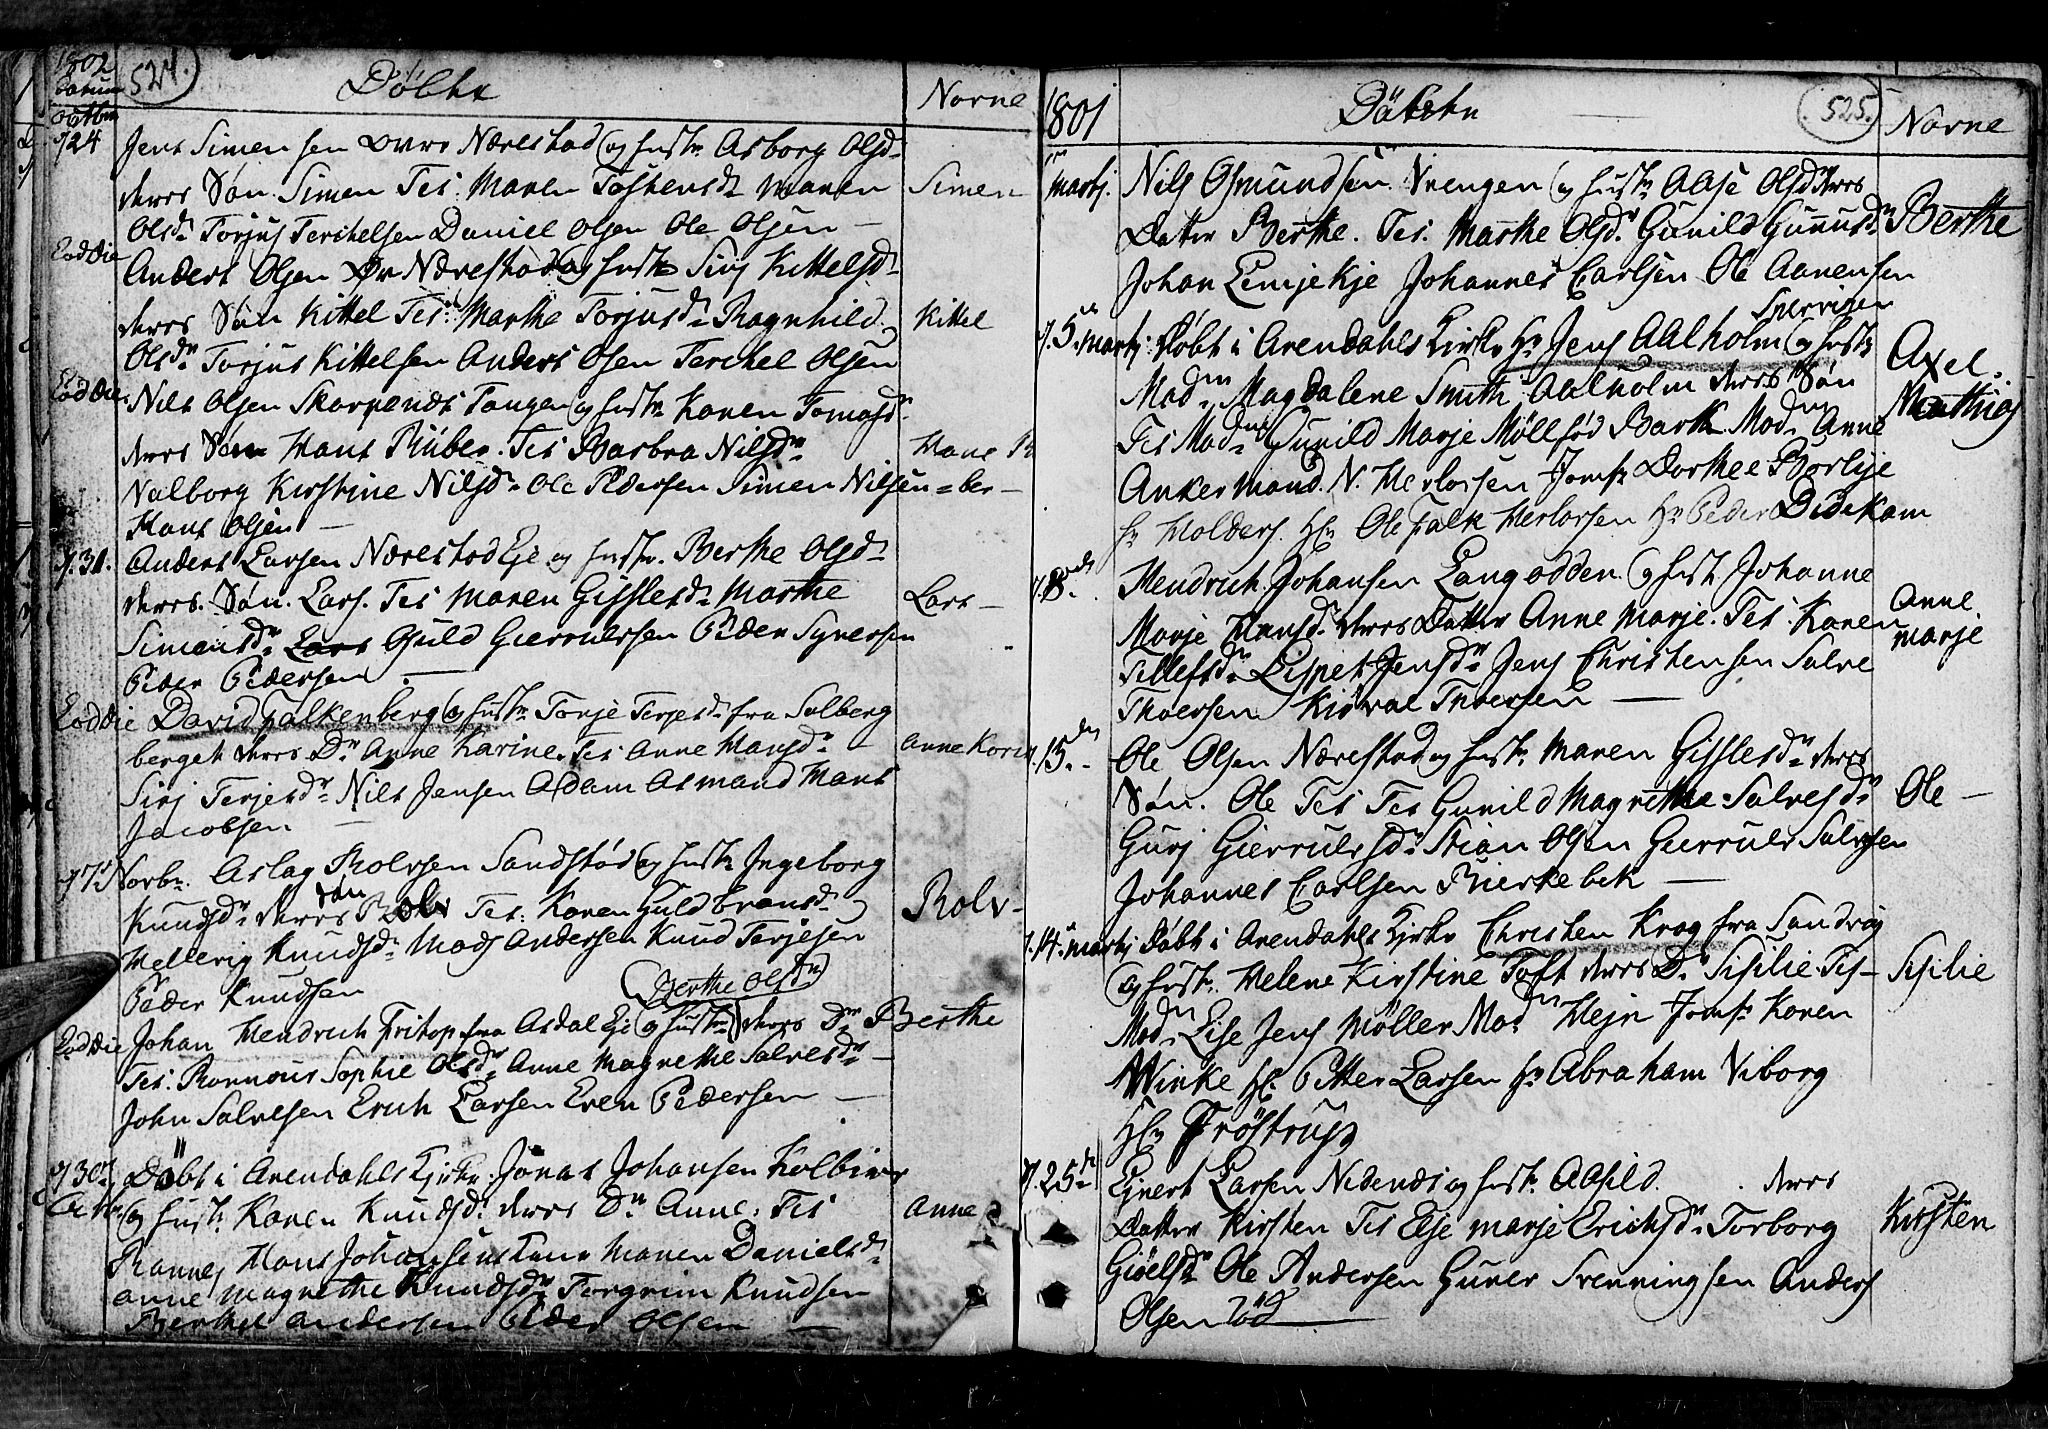 1802 524. Döbte Navne
Datum
Octbr
d 24 Jens Simensen Øvre Nærestad og hustr Asborg Olsd.
deres Søn Simen Tes: Maren Tostensdr Maren Simen
Olsdr Torjus Terchelsen Daniel Olsen Ole Olsen —
Eod Die Anders Olsen Øv Nærestad og hustr Sirj Kittelsd.
deres Søn Kittel Tes: Marthe Torjusdr Ragnhild Kittel
Olsdr Torjus Kittelsen Anders Olsen Terchel Olsen
Eod Die Nils Olsen Skarpenæs Tangen og hustr Karen Tomasdr
deres Søn Hans Rüber. Tes Barbra Nilsdr Hans Rü
Valborg Kirstine Nilsdr Ole Pedersen Simen Nilsen =ber —
Hans Olsen —
d 31. Anders Larsen Nærestad Eje og hustr. Berthe Olsd.
deres. Søn. Lars. Tes Maren Gislesdr Marthe Lars —
Simensdr Lars Guld Gierrulssen Peder Syversen
Peder Pedersen —
Eod Die David Falkenberg og hustr Tonje Terjesdr fra Solberg
berget deres Dr Anne Karine. Tes Anne Hansdr — Anne Karin
Sirj Terjesdr Nils Jensen Adam Asmand Hans
Jacobsen —
d 7 Novbr. Aslag Rolvsen Sandstød og hustr Ingeborg
Søn
Knudsdr deres Rolv Tes: Karen Guldbransdr Rolv —
Mellevig Knudsdr Mads Andersen Knud Terjesen
Peder Knudsen (Berthe Olsdr)
Eod Die Johan Hendrich Fritop fra Asdal Eje og hustr deres Dr Berthe
Tes: Ronnour Sophie Olsdr Anne Magrethe Salvesdr —
John Salvesen Erich Larsen Even Pedersen —
d 30 Döbt i Arendahls Kjrke. Jonas Johansen Kolbins
og hustr Karen Knudsdr deres Dr Anne. Tes Anne
Hans Johansens Maren Danielsdr
Anne Magrethe Knudsdr Torgrim Knudsen
Berthel Andersen Peder Olsen —
1801 Döbte 525. Navne
1
Martj. Nils Osmundsen Vrengen og hustr Aase Olsdr deres
Datter Berthe. Tes. Marthe Olsdr Gunild Gunusdr Berthe
Johan Johannes Carlsen Ole Aanensen
d 5 Martj. Døbt i Arendahls Kirke Hr Jens Aalholm og hustr Axel
Madm Magdalene Smith Aalholm deres Søn Mathias
Tes Madm Gunild Marje Möllfød Madm Anne
Ankermand. N. Herlofsen Jomfr Dorthe
Hr Holders. Hr. Ole Falk Herlofsen Hr Peder Dedekam
d 8. Hendrich Johansen Langodden og hustr Johanne
Marje Hansdr deres Datter Anne Marje. Tes. Karen Anne
Tellefsdr Lispet Jensdr Jens Christensen Salve Marje
Thoersen Thoersen —
d 15. — Ole Olsen Nærestad og hustr Maren Gislesdr deres
Søn. Ole Tes Tes Gunild Magrethe Salvesdr Ole —
Gurj Gierrulssdr Stian Olsen Gierruls Salvesen
Johannes Carlsen Bierkebek —
d. 14. Martj Døbt i Arendahls Kjrke Christen Krog fra Sandvig
og hustr. Helene Kirstine Toft deres Dr Sisilie Tes — Sisilie
Madm Lise Jens Møller Mad Hejn Jomfr Karen
Winke Hr. Petter Larsen Hr Abraham Viborg
Hr Fröstrup
d. 25. Ejvert Larsen Nedenæs og hustr Aasild. deres
Datter Kirsten Tes Else Marje Erichsdr Torborg Kirsten
Giøelsdr Ole Andersen Guner Svenningsen Anders
Olsen Rød —